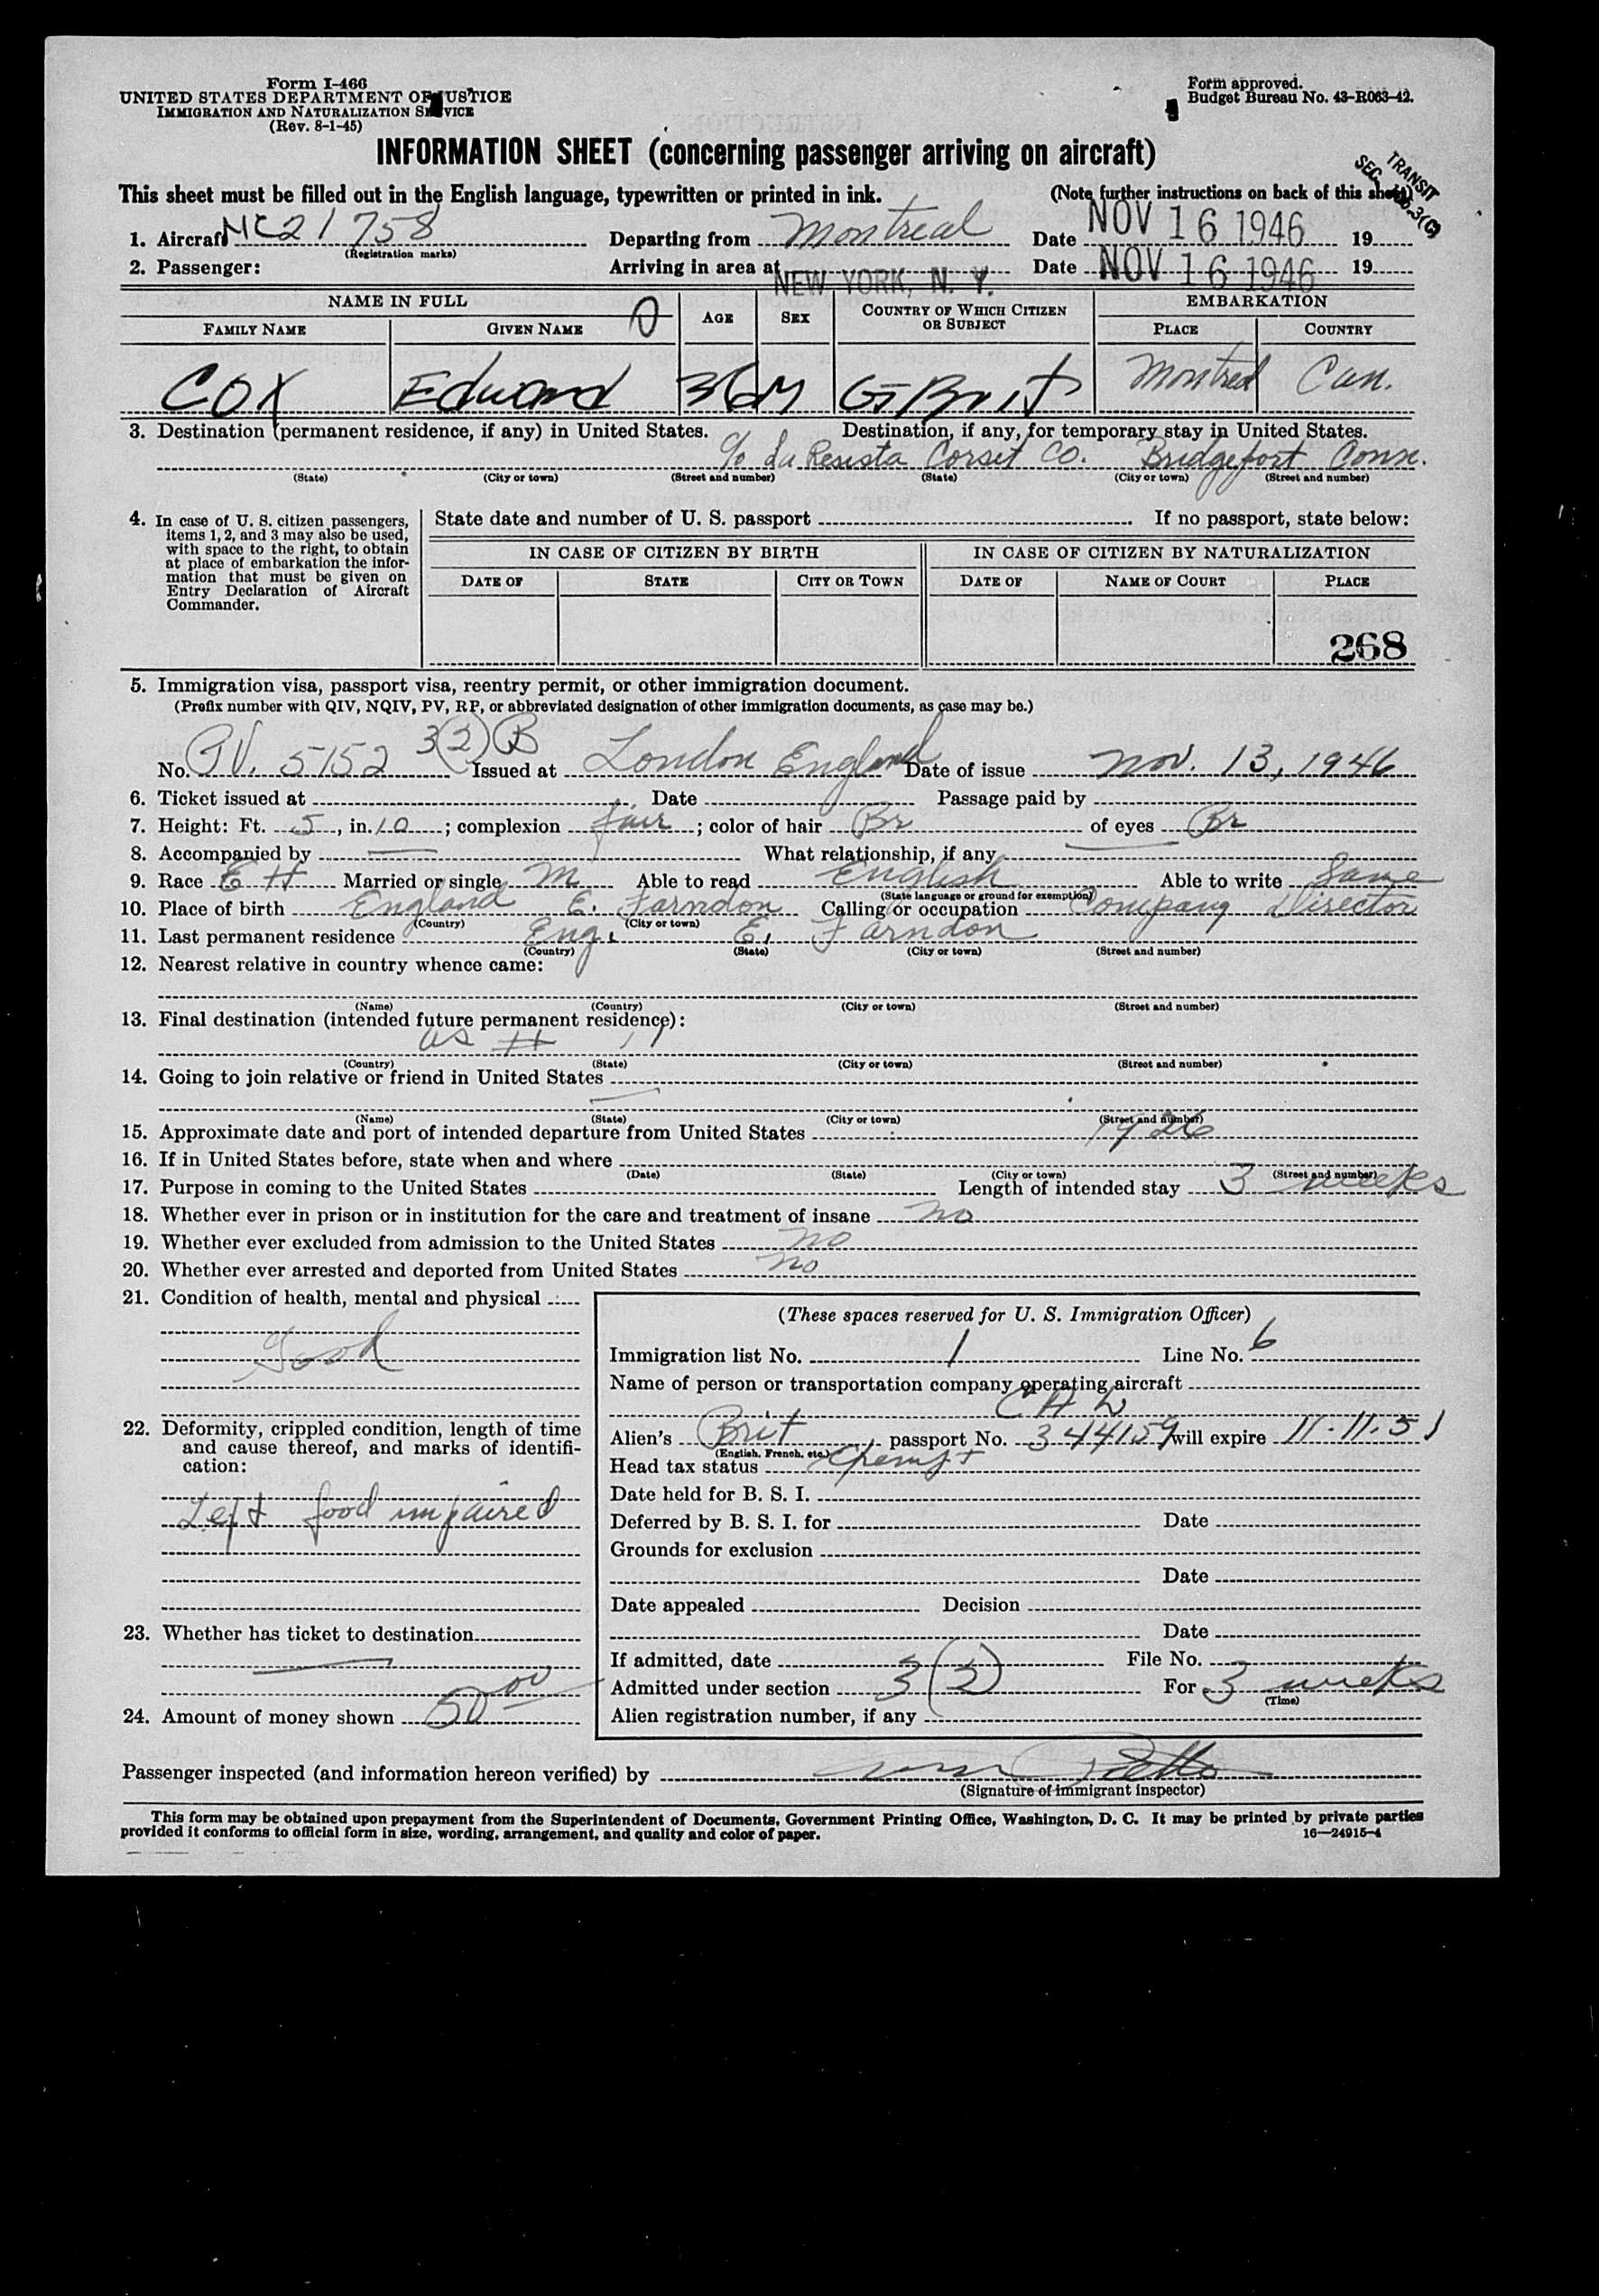 Form I-466
UNITED STATES DEPARTMENT OF JUSTICE
IMMIGRATION AND NATURALIZATION SERVICE
(Rev. 8-1-45)
Form approved.
Budget Bureau No. 43-R063-42.
INFORMATION SHEET (concerning passenger arriving on aircraft)
TRANSIT
This sheet must be filled out in the English language, typewritten or printed in ink. (Note further instructions on back of this sheet)
1. Aircraft NC21758 Departing from Montreal Date NOV 16 1946 19
(Registration marks)
2. Passenger: Arriving in area at NEW YORK, N. Y. Date NOV 16 1946 19
NAME IN FULL AGE SEX COUNTRY OF WHICH CITIZEN OR SUBJECT EMBARKATION
FAMILY NAME GIVEN NAME PLACE COUNTRY
COX Edward 36 M Gt Brit Montreal Can.
3. Destination (permanent residence, if any) in United States. Destination, if any, for temporary stay in United States.
c/o La Resista Corset Co. Bridgeport Conn.
(State) (City or town) (Street and number) (State) (City or town) (Street and number)
4. In case of U. S. citizen passengers, items 1, 2, and 3 may also be used, with space to the right, to obtain at place of embarkation the information that must be given on Entry Declaration of Aircraft Commander.
State date and number of U. S. passport If no passport, state below:
IN CASE OF CITIZEN BY BIRTH IN CASE OF CITIZEN BY NATURALIZATION
DATE OF STATE CITY OR TOWN DATE OF NAME OF COURT PLACE
268
5. Immigration visa, passport visa, reentry permit, or other immigration document.
(Prefix number with QIV, NQIV, PV, RP, or abbreviated designation of other immigration documents, as case may be.)
No. PV. 5152 3(2)B Issued at London England Date of issue Nov. 13, 1946
6. Ticket issued at Date Passage paid by
7. Height: Ft. 5, in. 10; complexion fair; color of hair Br of eyes Br
8. Accompanied by What relationship, if any
9. Race E H Married or single M Able to read English Able to write Same
(State language or ground for exemption)
10. Place of birth England E. Farndon Calling or occupation Company Director
(Country) (City or town)
11. Last permanent residence Eng. E. Farndon
(Country) (State) (City or town) (Street and number)
12. Nearest relative in country whence came:
(Name) (Country) (City or town) (Street and number)
13. Final destination (intended future permanent residence):
as # 11
(Country) (State) (City or town) (Street and number)
14. Going to join relative or friend in United States
(Name) (State) (City or town) (Street and number)
15. Approximate date and port of intended departure from United States
1926
16. If in United States before, state when and where
(Date) (State) (City or town) (Street and number)
17. Purpose in coming to the United States Length of intended stay 3 weeks
18. Whether ever in prison or in institution for the care and treatment of insane no
19. Whether ever excluded from admission to the United States no
20. Whether ever arrested and deported from United States no
21. Condition of health, mental and physical
Good
22. Deformity, crippled condition, length of time and cause thereof, and marks of identification:
Left food impaired
23. Whether has ticket to destination
24. Amount of money shown 50 00
(These spaces reserved for U. S. Immigration Officer)
Immigration list No. 1 Line No. 6
Name of person or transportation company operating aircraft
Alien's Brit passport No. 344159 will expire 11.11.51
(English, French, etc.)
Head tax status Exempt
Date held for B. S. I.
Deferred by B. S. I. for Date
Grounds for exclusion
Date
Date appealed Decision
Date
If admitted, date File No.
Admitted under section 3(2) For 3 weeks
(Time)
Alien registration number, if any
Passenger inspected (and information hereon verified) by
(Signature of immigrant inspector)
This form may be obtained upon prepayment from the Superintendent of Documents, Government Printing Office, Washington, D. C. It may be printed by private parties
provided it conforms to official form in size, wording, arrangement, and quality and color of paper. 16—24915-4